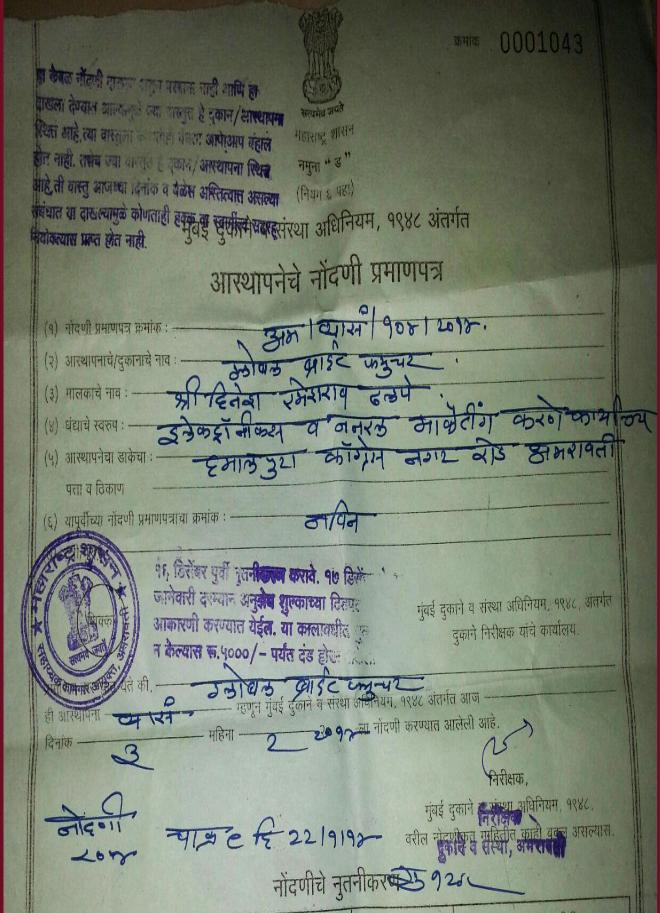 क्रमांक 0001043
हा केवळ नोंदणी दाखला असून परवाना नाही आणि हा
दाखला देण्यात आल्यामुळे ज्या वास्तुत हे दुकान/आस्थापना
स्थित आहे, त्या वास्तुला आपोआप बहाल
होत नाही. तसेच ज्या वास्तुत हे दुकान/आस्थापना स्थित
आहे, ती वास्तु आजच्या दिनांक व वेळेस अस्तित्वात असल्या
संबंधात या दाखल्यामुळे कोणताही हक्क वा
नियोक्त्यास प्राप्त होत नाही.
सत्यमेव जयते
महाराष्ट्र शासन
नमुना "ड"
(नियम ६ पहा)
मुंबई दुकाने व संस्था अधिनियम, १९४८ अंतर्गत
आस्थापनेचे नोंदणी प्रमाणपत्र
(१) नोंदणी प्रमाणपत्र क्रमांक : अम/व्यासं/१०४/२०१४.
(२) आस्थापनाचे/दुकानाचे नाव : ग्लोबल ब्राईट फ्युचर
(३) मालकाचे नाव : श्री दिनेश रमेशराव ढलपे
(४) धंद्याचे स्वरुप : इलेक्ट्रॉनीक्स व जनरल मार्केटींग करणे कार्यालय
(५) आस्थापनेचा डाकेचा : हमालपुरा काँग्रेस नगर रोड अमरावती
पत्ता व ठिकाण
(६) यापूर्वीच्या नोंदणी प्रमाणपत्राचा क्रमांक : नविन
महाराष्ट्र शासन
सहाय्यक कामगार आयुक्त, अमरावती
सत्यमेव जयते
शिक्का
१६, डिसेंबर पुर्वी नुतनीकरण करावे. १७ डिसें
जानेवारी दरम्यान अनुज्ञेय शुल्काच्या दिडपट
आकारणी करण्यात येईल. या कालावधीत
न केल्यास रू.५०००/- पर्यंत दंड होऊ
मुंबई दुकाने व संस्था अधिनियम, १९४८, अंतर्गत
दुकाने निरीक्षक यांचे कार्यालय.
येते की, ग्लोबल ब्राईट फ्युचर
ही आस्थापना व्यासं म्हणून मुंबई दुकाने व संस्था अधिनियम, १९४८ अंतर्गत आज
दिनांक ३ महिना २ २०१४ ला नोंदणी करण्यात आलेली आहे.
निरीक्षक,
मुंबई दुकाने व संस्था अधिनियम, १९४८.
वरील नोंदणीकृत माहितीत काही बदल असल्यास.
निरीक्षक
दुकाने व संस्था, अमरावती
नोंदणी
२०४
चाक्र ९ दि 22/1/14
नोंदणीचे नुतनीकरण